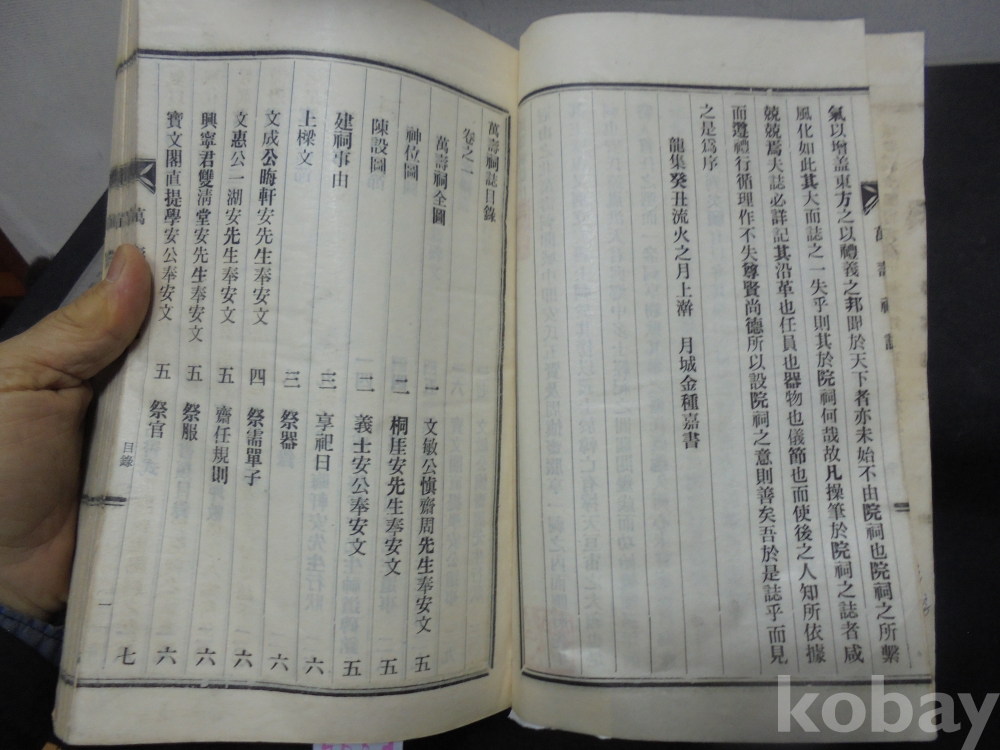 萬壽祠誌
氣以增盖東方之以禮義之邦聞於天下者亦未始不由院祠也院祠之所繫
風化如此其大而誌之一失乎則其於院祠何哉故凡操筆於院祠之誌者咸
兢兢焉夫誌必詳記其沿革也任員也器物也儀節也而使後之人知所依據
而遵禮行循理作不失尊賢尚德所以設院祠之意則善矣吾於是誌乎而見
之是爲序
龍集癸丑流火之月上澣 月城金種嘉書
萬壽祠誌目錄
卷之一
萬壽祠全圖 一 文敏公愼齋周先生奉安文 五
神位圖 二 桐厓安先生奉安文 五
陳設圖 二 義士安公奉安文 五
建祠事由 三 享祀日 六
上樑文 三 祭器 六
文成公晦軒安先生奉安文 四 祭需單子 六
文惠公一湖安先生奉安文 五 齋任規則 六
興寧君雙淸堂安先生奉安文 五 祭服 六
寶文閣直提學安公奉安文 五 祭官 七
萬
目錄
一
kobay